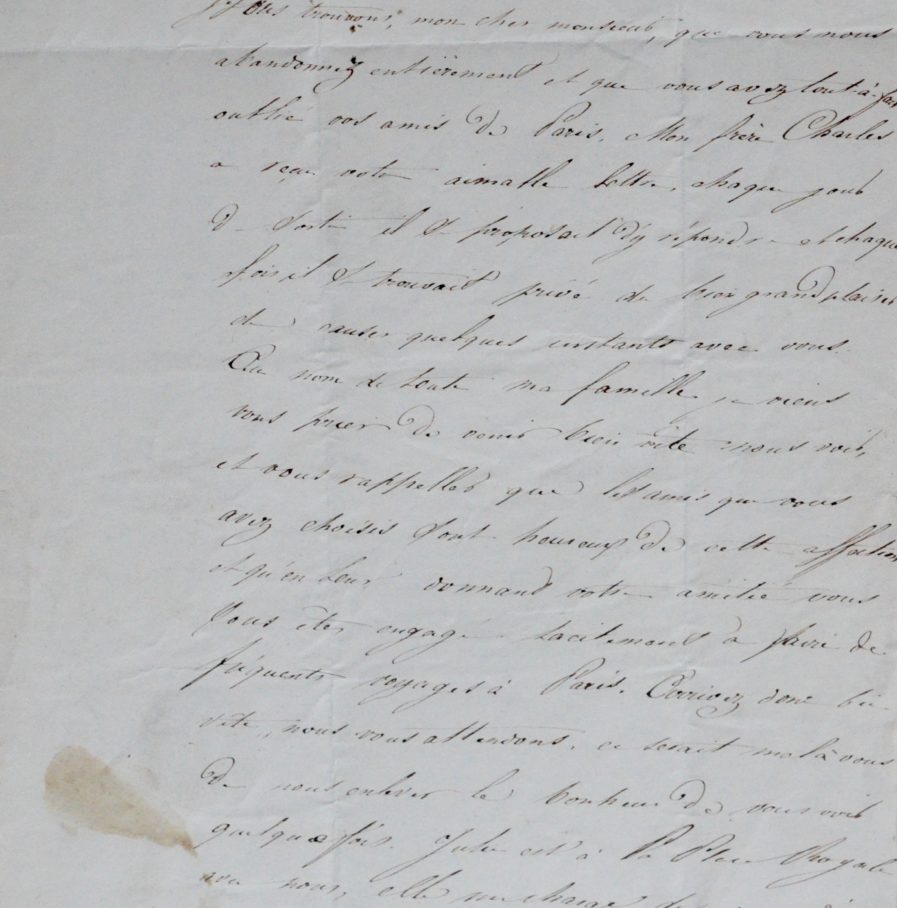 Nous trouvons, mon cher monsieur, que vous nous
abandonnez entièrement et que vous avez tout-à-fait
oublié vos amis de Paris. Mon frère Charles
a reçu votre aimable lettre, chaque jour
de sortie il se proposait d'y répondre et chaque
fois il se trouvait privé du bien grand plaisir
de causer quelques instants avec vous.
Au nom de toute ma famille je viens
vous prier de venir bien vite nous voir,
et vous rappeller que les amis que vous
avez choisis sont heureux de cette affection
et qu'en leur donnand votre amitié vous
vous êtes engagé tacitement à faire de
fréquents voyages à Paris. Arrivez donc bien
vite, nous vous attendons, ce serait mal à vous
de nous enlever le bonheur de vous voir
quelquefois. Julie est à la Place Royale
avec nous, elle me charge de